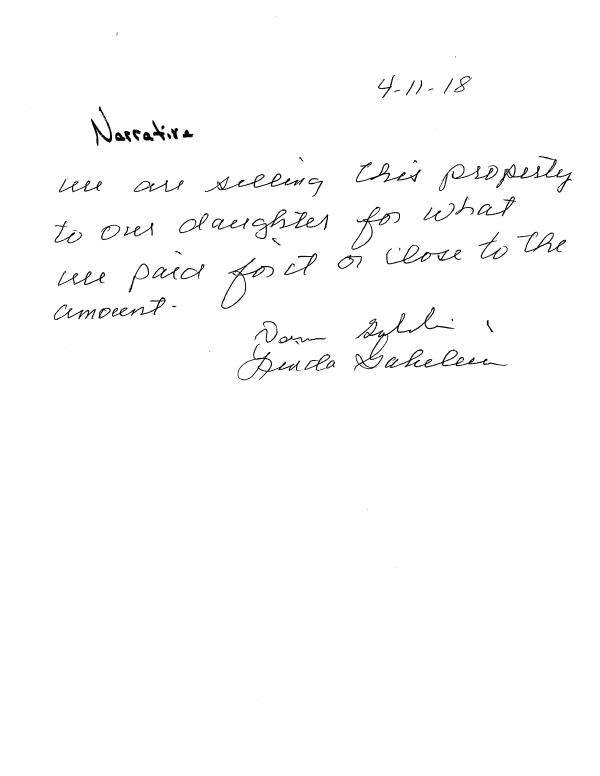 4-11-18
Narrative
we are selling this property
to our daughter for what
we paid for it or close to the
amount.
Linda